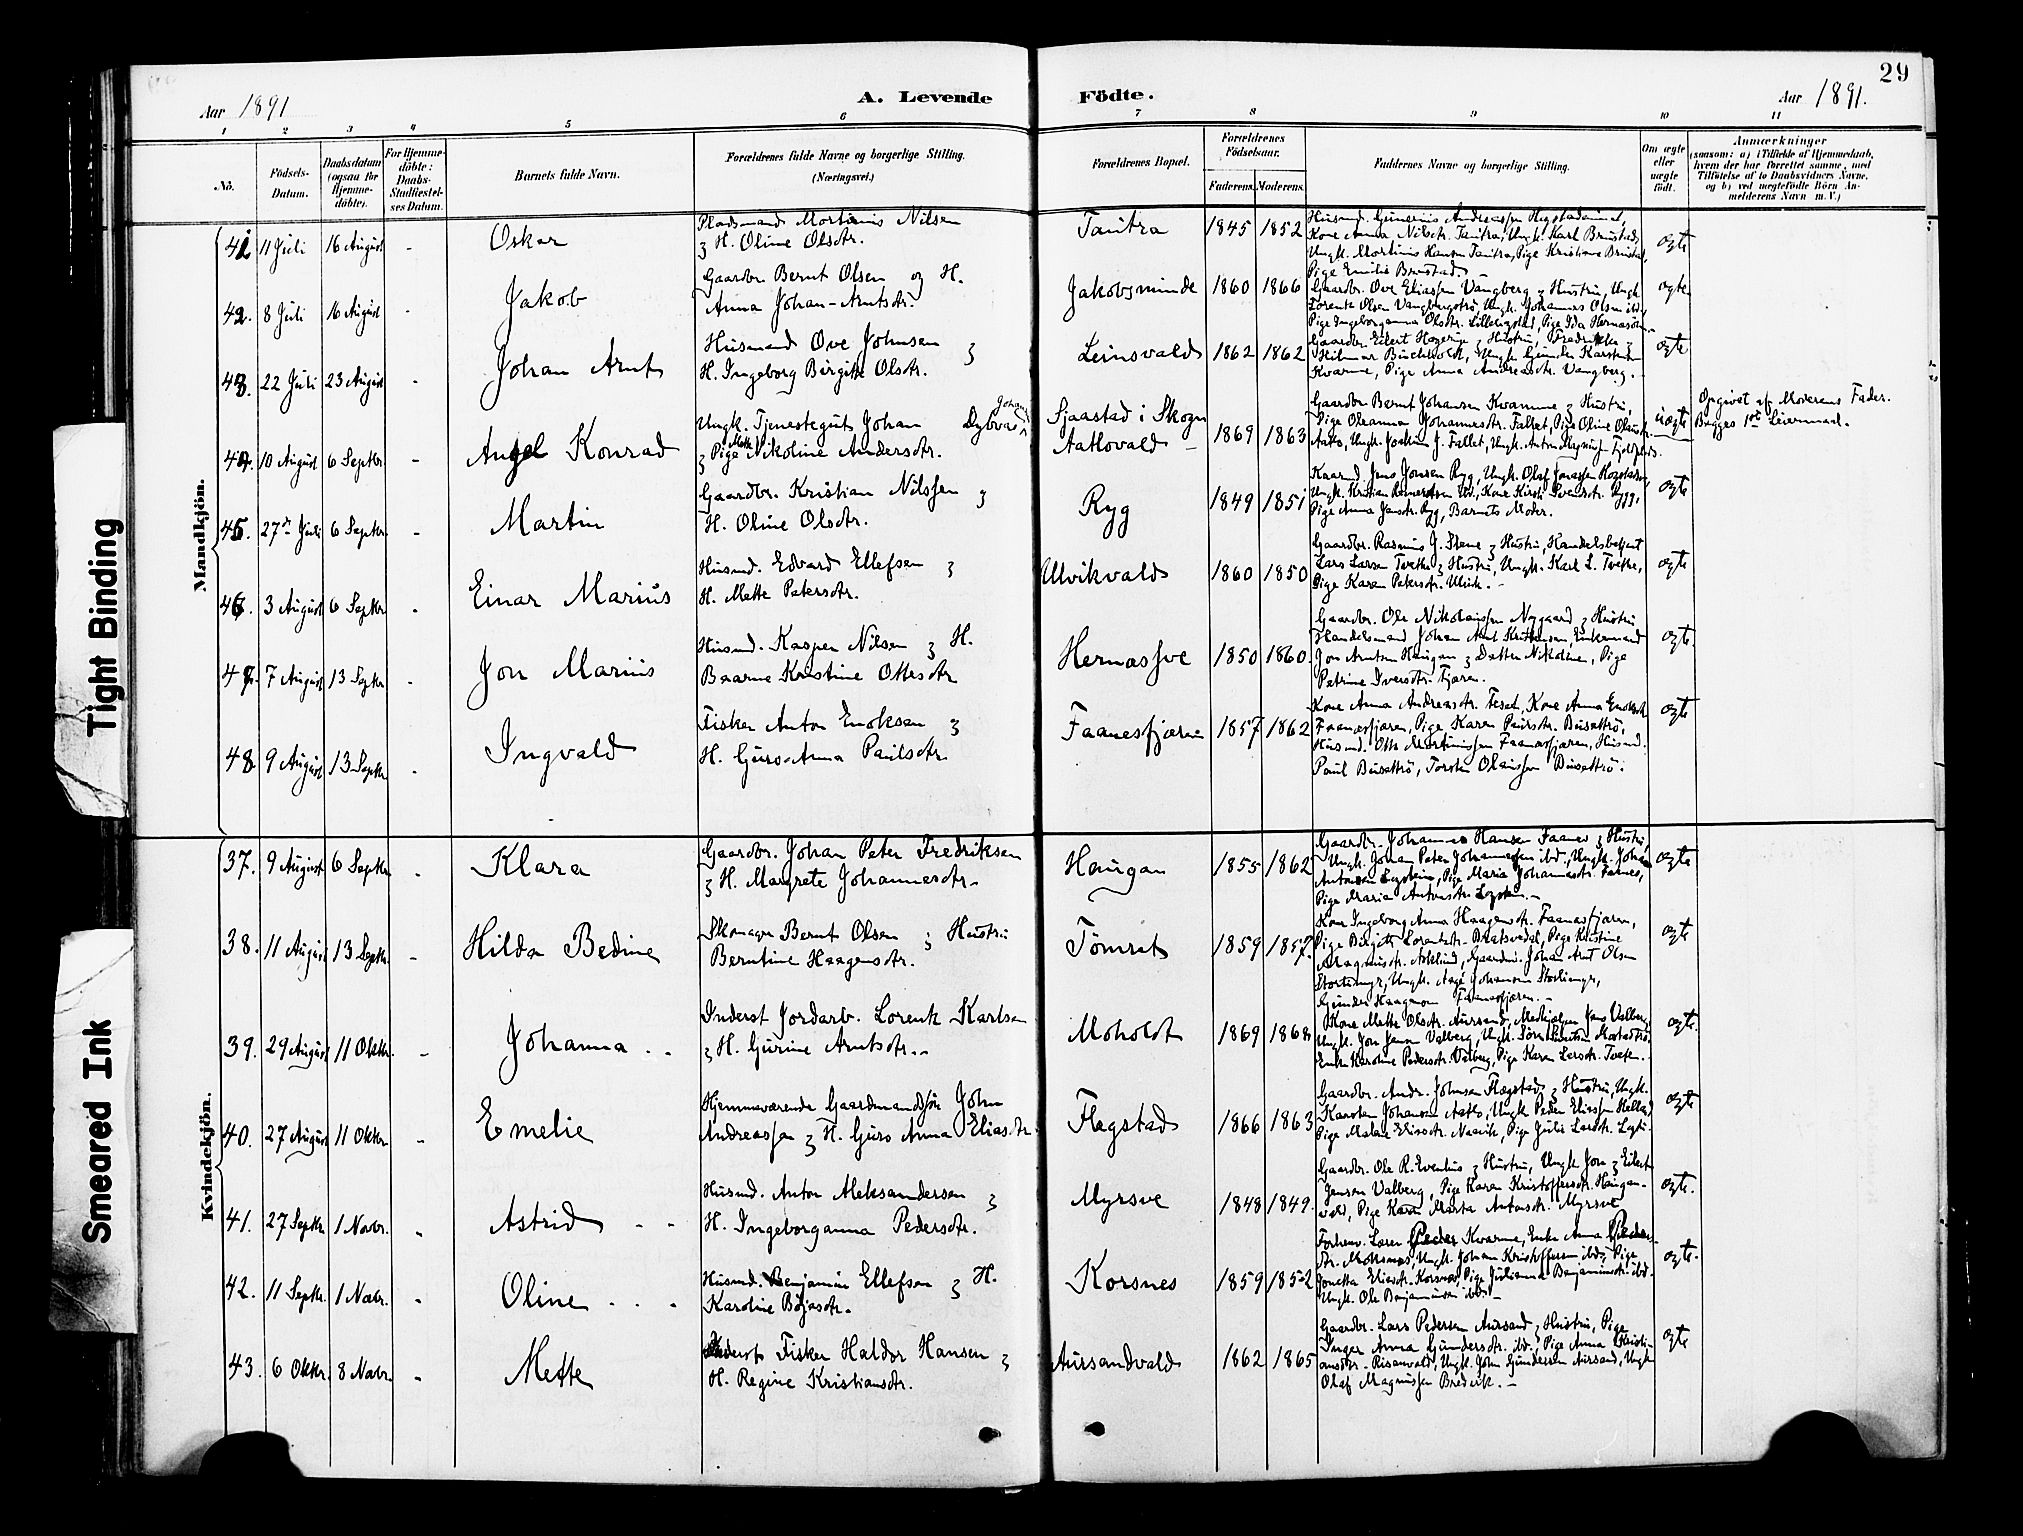 29
Aar 1891
A. Levende Födte.
Aar 1891.
1 2 3 4 5 6 7 8 9 10 11
No.
Födsels-Datum.
Daabsdatum (ogsaa for Hjemme-döbte).
For Hjemme-döbte: Daabs-Stadfæstel-ses Datum.
Barnets fulde Navn.
Forældrenes fulde Navne og borgerlige Stilling. (Næringsvei.)
Forældrenes Bopæl.
Forældrenes Födselsaar.
Faderens. Moderens.
Faddernes Navne og borgerlige Stilling.
Om ægte eller uægte födt.
Anmærkninger
(saasom: a) i Tilfælde af Hjemmedaab,
hvem der har forrettet samme, med
Tilföielse af to Daabsvidners Navne,
og b) ved uægtefödte Börn An-
melderens Navn m. V.)
Mandkjön.
41. 11 Juli 16 August - Oskar
Pladsmand Mortinus Nilsen
& H. Oline Olsdtr.
Tautra 1845 1852
Kone Anna Nilsdtr. Tautra, Ungk. Karl Brustad,
Ungk. Mortinus Hansen Tautra, Pige Kristiane Brustad,
Pige Emilie Brustad.
ægte
42. 8 Juli 16 August - Jakob
Gaardbr. Bernt Olsen og H.
Anna Johan-Arntsdtr.
Jakobsminde 1860 1866
Gaardbr. Ove Eliassen Vangberg & Hustru, Ungk.
Lorents Olsen Vangbergstrø, Ungk. Johannes Olsen ibd.,
Pige Ingeborganna Olsdtr. Lillehegstad, Pige Ida
ægte
43. 22 Juli 23 August - Johan Arnt
Husmand Ove Johnsen &
H. Ingeborg Birgitte Olsdtr.
Leinsvald 1862 1862
Gaardbr. Eilert & Hustru, Fredrikke &
Hilmar Buchholdt, Ungk. Gunder Karstensen
Kvamme, Pige Anna Andreasdtr. Vangberg.
ægte
44. 10 August 6 Septbr. - Angel Konrad
Ungk. Tjenestegut Johan Johansen Dybvad
& Pige Mette Nikoline Andersdtr.
Sjaastad i Skogn
Aatlovald - 1869 1863
Gaardbr. Bernt Johansen Kvamme & Hustru,
Pige Oleanna Johannesdtr. Fallet, Pige Oline Olausdtr.
Aatlo, Ungk. Joakim J. Fallet, Ungk. Anton Magnus
uægte
Opgivet af Moderens Fader.
Begges 1ste Leiermaal.
45. 27de Juli 6 Septbr - Martin
Gaardbr. Kristian Nilssen &
H. Oline Olsdtr.
Ryg 1849 1851
Kaarmd. Jens Jonsen Ryg, Ungk. Olaf Jonassen
Ungk. Kristian ibd., Kone Kirsti Svendsdtr. Rygg,
Pige Anna Jensdtr. Ryg, Barnets Moder.
ægte
46. 3 August 6 Septbr - Einar Marius
Husmd. Edvard Ellefsen &
H. Mette Petersdtr.
Ulvikvald 1860 1850
Gaardbr. Rasmus J. Stene & Hustru, Handelsbetjent
Lars Larsen Tvette & Hustru, Ungk. Karl L. Tvette,
Pige Karen Petersdtr. Ulvik. -
ægte
47. 7 August 13 Septbr - Jon Marius
Husmd. Kasper Nilsen & H.
Beanne Kristine Ottesdtr
Hernassve 1850 1860.
Gaardbr. Ole Nikolaissen Nygaard & Hustru
Handelsmand Johan Arnt Kristiansen, Enkemand
Jon Arntsen Haugan & Datter Nikoline, Pige
Petrine Iversdtr. Fjæren.
ægte.
48. 9 August 13 Septbr - Ingvald
Fisker Anton Enoksen &
H. Guro-Anna Paulsdtr
Faanesfjæren 1857 1862
Kone Anna Andreasdtr. Feset, Kone Anna Enoksdtr
Faanesfjæren, Pige Karen Paulsdtr. Busettrø,
Husmd. Otto Martinussen Faanesfjæren, Husmd.
Paul Busettrø, Torsten Olaussen Busettrø.
ægte
Kvindekjön.
37. 9 August 6 Septbr - Klara
Gaardbr. Johan Peter Fredriksen
& H. Margrete Johannesdtr.
Haugan 1855 1862
Gaardbr. Johannes Hansen Faanes & Hustru,
Ungk. Johan Peter Johannessen ibd., Ungk. Johan
Antonsen Løgsten, Pige Maria Johannesdtr. Faanes,
Pige Maria Antonsdtr. Løgsten. -
ægte
38. 11 August 13 Septbr - Hilda Bedine
Skomager Bernt Olsen & Hustru
Berntine Haagensdtr.
Tømret 1859 1857.
Kone Ingeborg Anna Haagensdtr. Faanesfjæren,
Pige Birgitte Lorentsdtr. Bratsvedal, Pige Kristine
Magnusdtr. Aaklund, Gaardmd. Johan Arnt Olsen
Stortemyr, Ungk. Aage Johansen Stortemyr,
Gunder Haagensen Faanesfjæren. -
ægte
39. 29 August 11 Oktbr. - Johanna
Inderst Jordarb. Lorents Karlsen
& H. Gurine Arntsdtr. -
Moholdt 1869 1868
Kone Mette Olsdtr. Aursand, Medhjælper Jens Valberg
Ungk. Jon Jensen Valberg, Ungk.
Enke Karoline Pedersdtr. Valberg, Pige Karen Larsdtr. Tvete.
ægte.
40. 27 August 11 Oktbr - Emelie
Hjemmeværende Gaardmandssøn John
Andreassen & H. Guro Anna Eliasdtr.
Flegstad 1866 1863
Gaardbr. Andr. Johnsen Flegstad & Hustru, Ungk.
Karsten Johansen Aatlo, Ungk Peder Eliassen Helland
Pige Malene Eliasdtr. Naavik, Pige Julie Larsdtr.
ægte
41. 27 Septbr. 1 Novbr. - Astrid
Husmd. Anton Aleksandersen &
H. Ingeborganna Pedersdtr.
Myrsve 1848 1849.
Gaardbr. Ole R. Evenhus & Hustru, Ungk. Jon & Eilert
Jensen Valberg, Pige Karen Kristoffersdtr. Haugan-
vald, Pige Karen Marta Antonsdtr. Myrsve
ægte.
42. 11 Septbr. 1 Novbr. - Oline
Husmd. Benjamin Ellefsen & H.
Karoline Børjesdtr.
Korsnes 1859 1852
Forhenv. Lærer Peder Kvamme, Enke Anna Peders-
dtr. Moksnes, Ungk. Johan Kristoffersen ibd., Pige
Jonetta Eliasdtr. Korsnes, Pige Julianna Benjaminsdtr. ibd.
Ungk. Ole Benjaminsen ibd. -
ægte.
43. 6 Oktbr. 8 Novbr. - Mette
Inderst Fisker Haldor Hansen &
H. Regine Kristiansdtr.
Aursandvald 1862 1865
Gaardbr. Lars Pedersen Aursand & Hustru, Pige
Inger Anna Gundersdtr. ibd., Pige Anna Kristi-
ansdtr. Risanvald, Ungk. John Gundersen Aursand, Ungk
Olaf Magnussen Brederk. -
ægte
Tight Binding
Smeared Ink